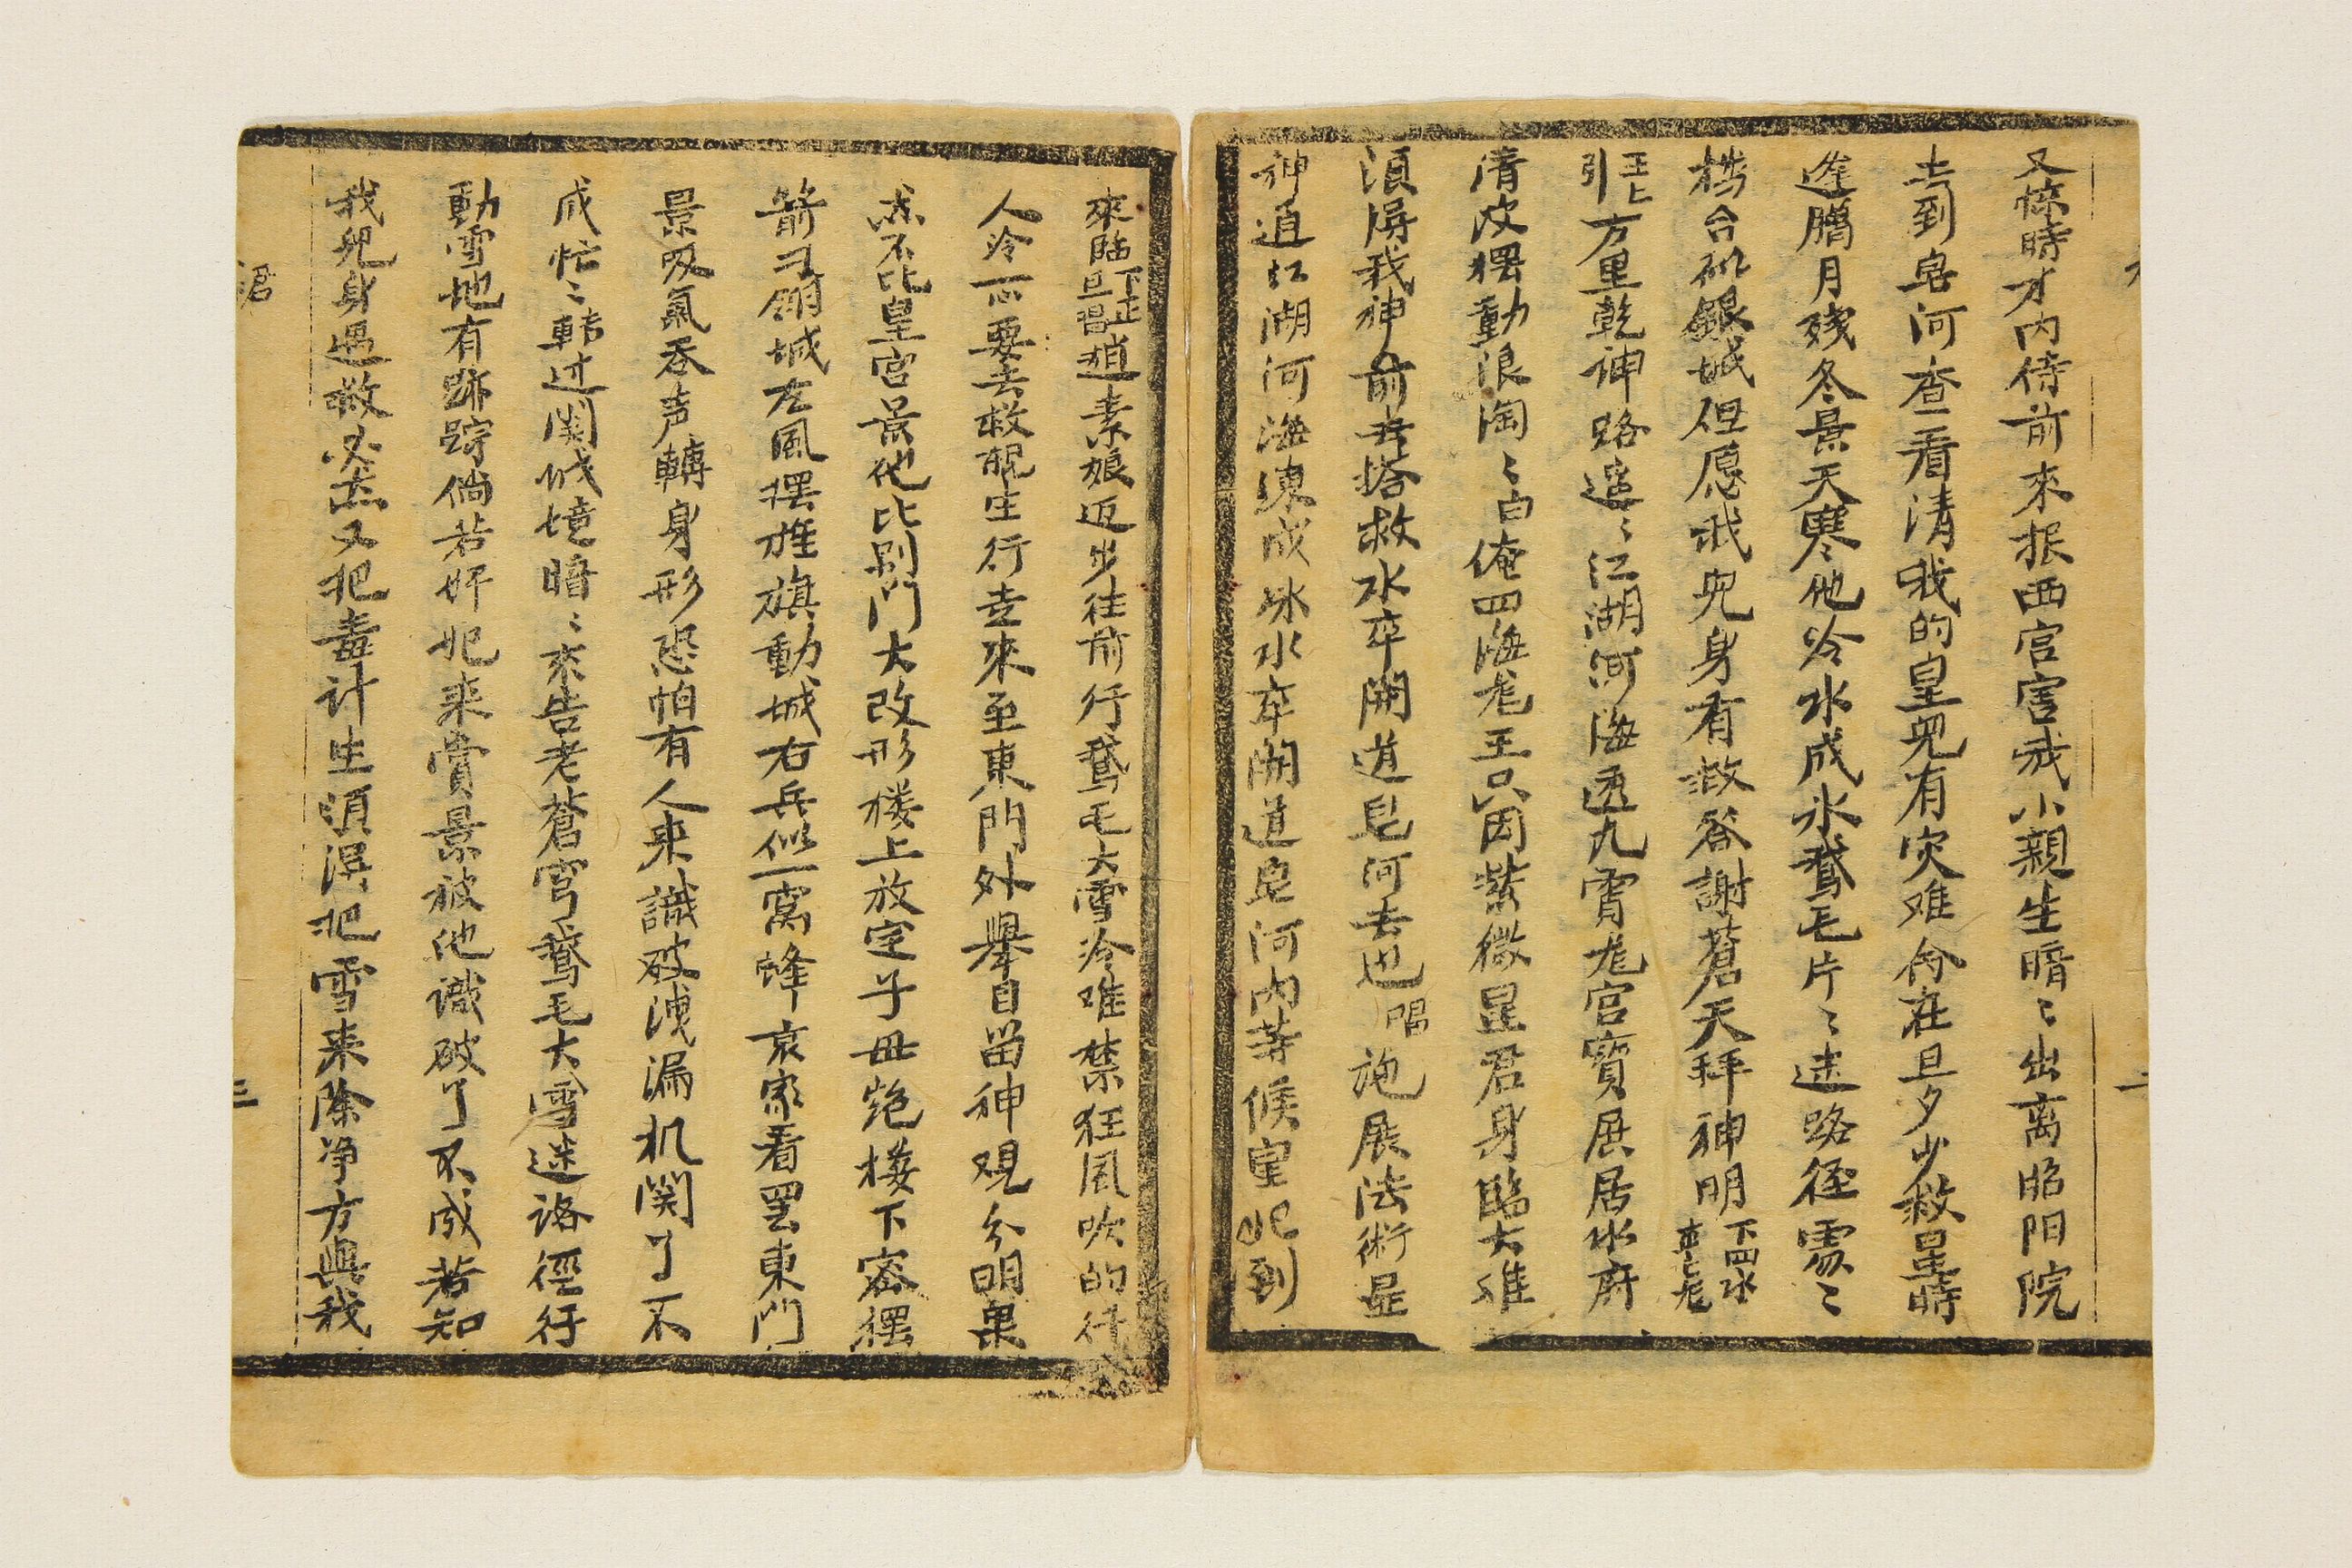 又惊時才内侍前來报西宫害我小親生暗〻出离昭阳院
去到皂河查一看清我的皇兒有灾难命在旦夕少救星時
逢臘月殘冬景天寒他冷水成氷鵞毛片〻迷路径雪〻
楼台砌銀城但愿我兒身有救答謝蒼天拜神明下四水卒上龙
王上引万里乾神路遥〻江湖河海透九霄龙宫寳展居水府
清波摆動浪淘〻白俺四海龙王只因紫微星君身臨大难
須得我神前去搭救水卒開道皂河去也唱施展法術显
神道江湖河海凍成氷水卒開道皂河内等候星妃到
來临下正旦唱素娘迈步往前行鵞毛大雪冷难禁狂風吹的行
人冷一心要去救親生行走來至東門外舉目留神观分明果
然不比皇宫景他比别門大改形楼上放定子母炮楼下密摆
箭弓翎城左風摆旌旗動城右兵似一窝蜂哀家看罢東門
景吸氣吞声轉身形恐怕有人来識破洩漏机関了不
成忙〻轉过関城境暗〻來告老蒼穹鵞毛大雪迷路徑行
動雪地有踪踪倘若奸妃来賞景被他識破了不成若知
我兒身遇救必然又把毒计生須得把雪来除净方與我
滄
三